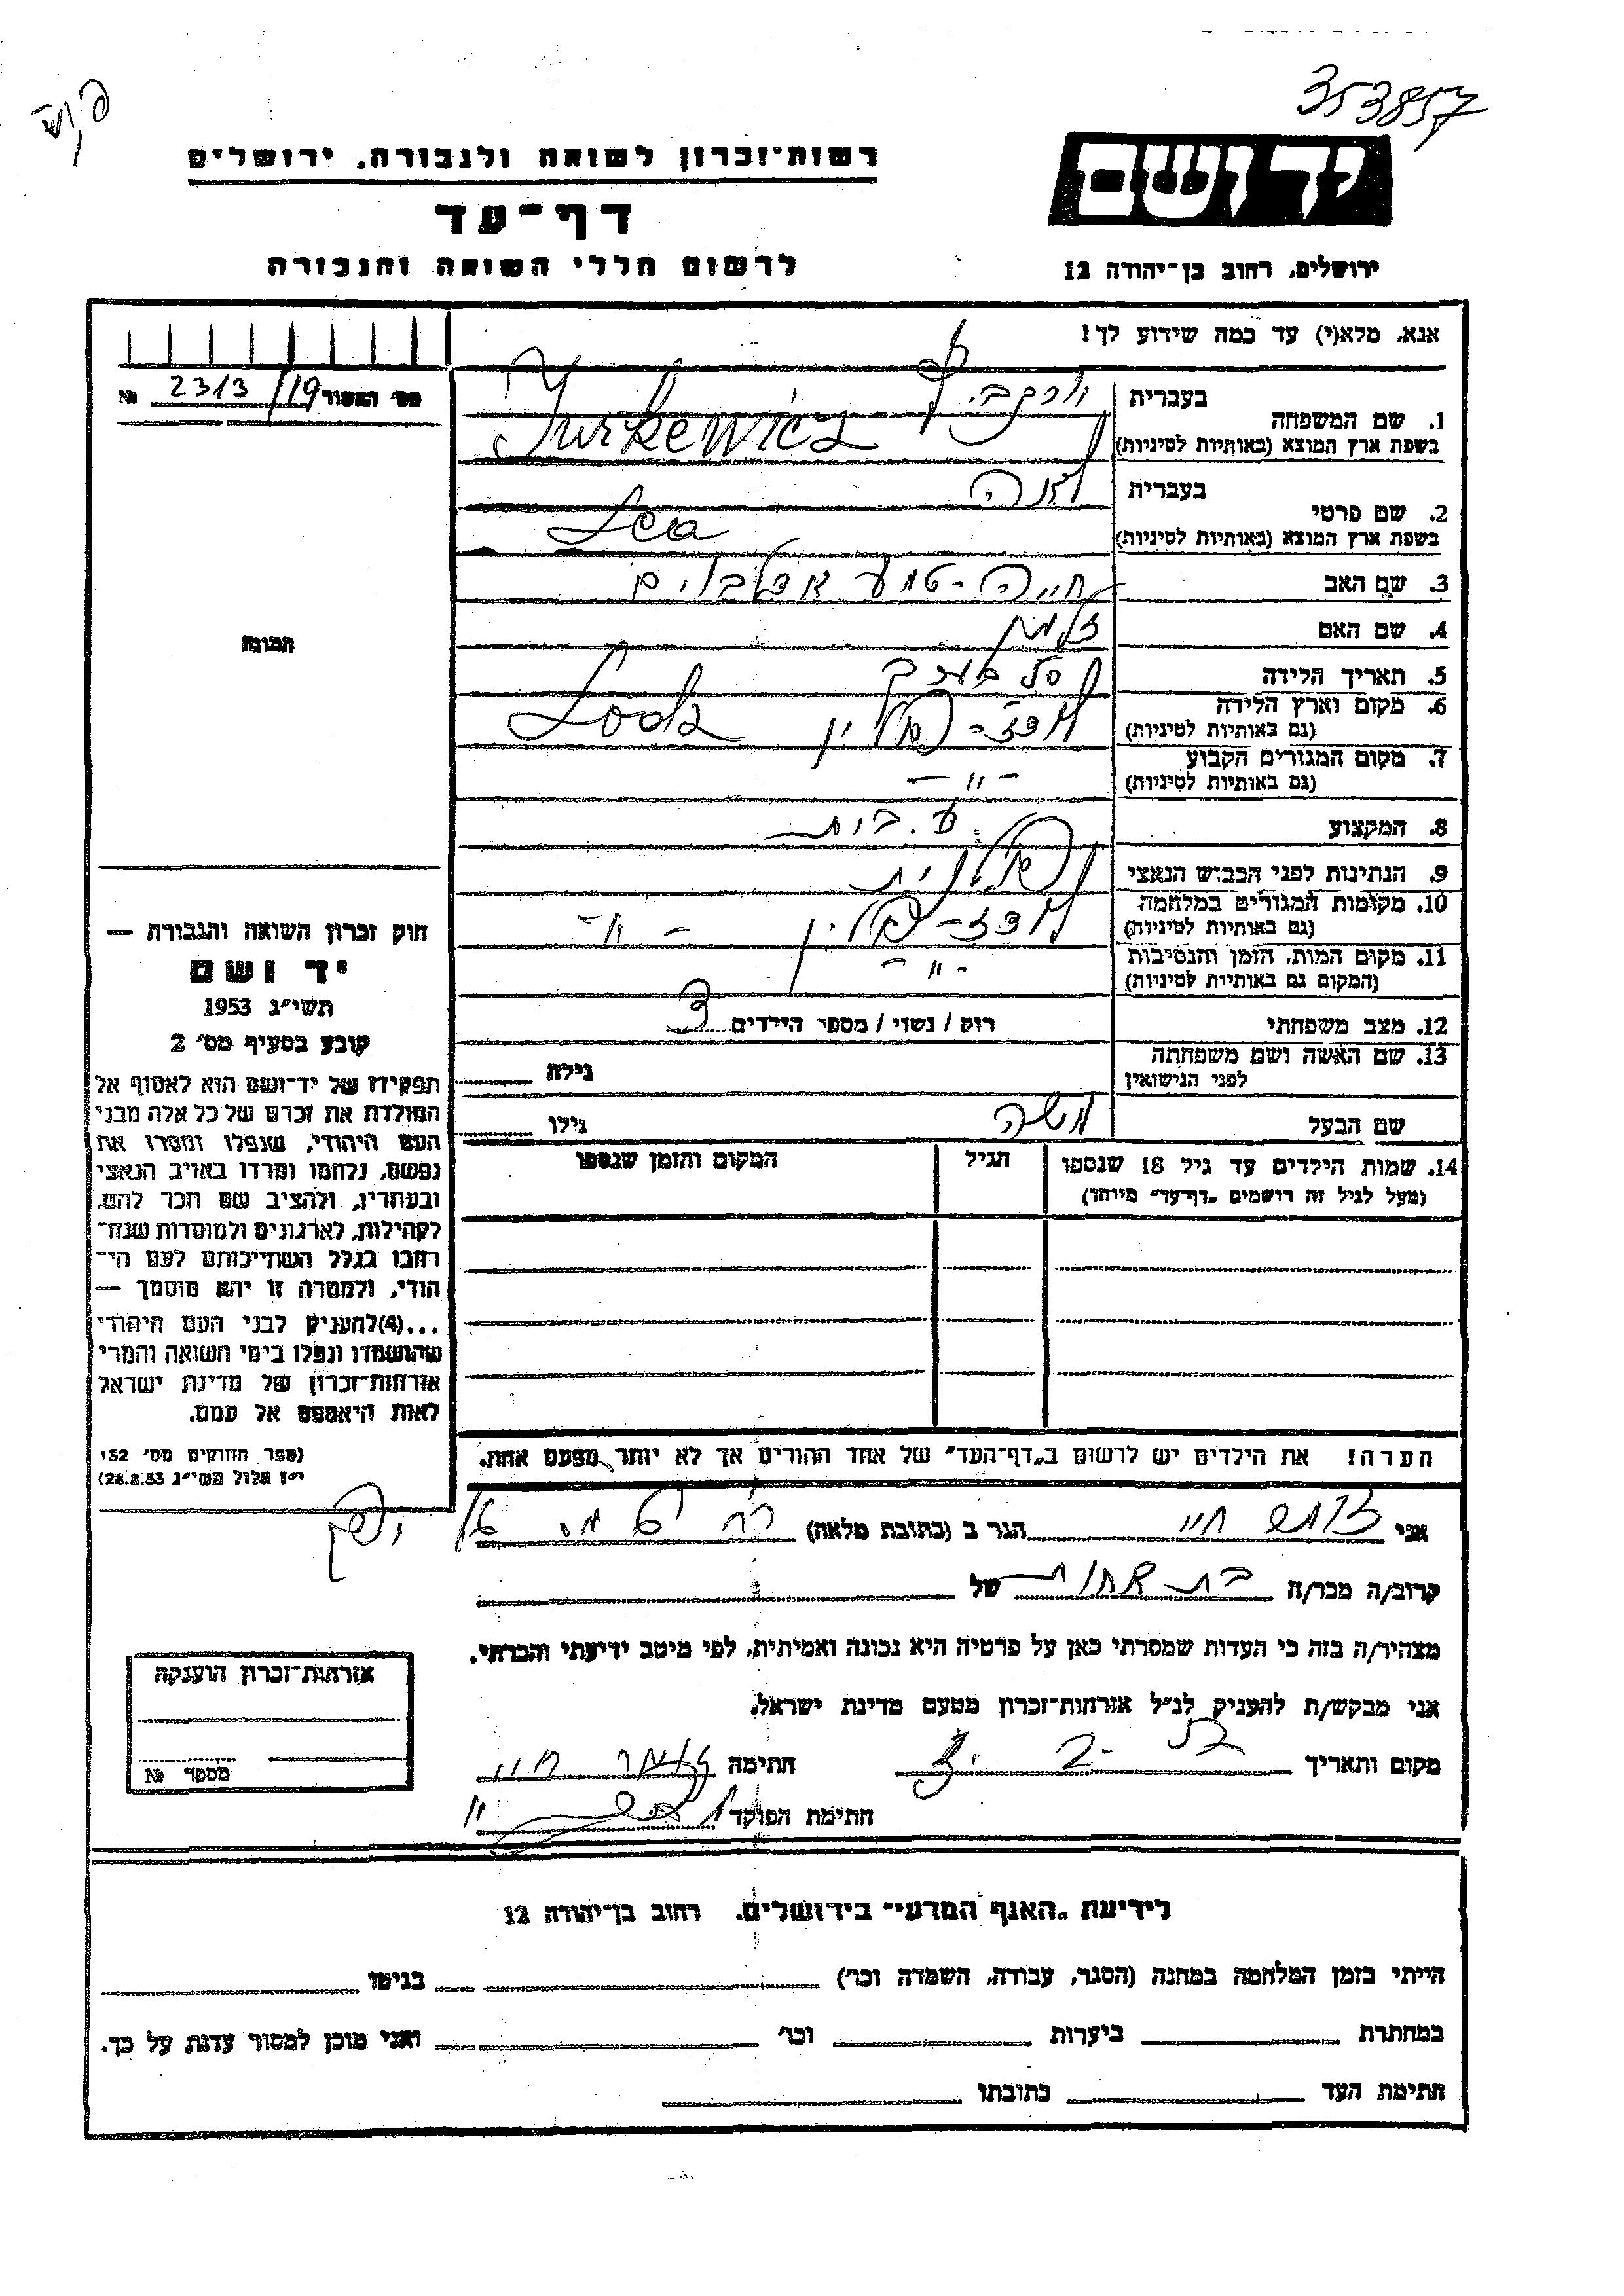 353857
יד ושם
ירושלים, רחוב בן־יהודה 12
רשות־זכרון לשואה ולגבורה, ירושלים
דף־עד
לרשום חללי השואה והגבורה
אנא, מלא(י) עד כמה שידוע לך!
מס׳ האשור 2313/19 №
תמונה
1. שם המשפחה
בעברית
בשפת ארץ המוצא (באותיות לטיניות) Jurkewicz
2. שם פרטי
בעברית לאה
בשפת ארץ המוצא (באותיות לטיניות) Lea
3. שם האב חיים
4. שם האם
5. תאריך הלידה
6. מקום וארץ הלידה לודז - פולין Lodz
(גם באותיות לטיניות)
7. מקום המגורים הקבוע - " -
(גם באותיות לטיניות)
8. המקצוע ע. בית
9. הנתינות לפני הכבוש הנאצי פולנית
10. מקומות המגורים במלחמה לודז - פולין - " -
(גם באותיות לטיניות)
11. מקום המות, הזמן והנסיבות - " -
(המקום גם באותיות לטיניות)
12. מצב משפחתי רוק / נשוי / מספר הילדים 3
13. שם האשה ושם משפחתה
לפני הנישואין
גילה
שם הבעל משה
גילו
14. שמות הילדים עד גיל 18 שנספו
(מעל לגיל זה רושמים „דף־עד״ מיוחד)
הגיל
המקום והזמן שנספו
הערה! את הילדים יש לרשום ב„דף־העד״ של אחד ההורים אך לא יותר מפעם אחת.
חוק זכרון השואה והגבורה —
יד ושם
תשי״ג 1953
קובע בסעיף מס׳ 2
תפקידו של יד־ושם הוא לאסוף אל
המולדת את זכרם של כל אלה מבני
העם היהודי, שנפלו ומסרו את
נפשם, נלחמו ומרדו באויב הנאצי
ובעוזריו, ולהציב שם וזכר להם,
לקהילות, לארגונים ולמוסדות שנח־
רבו בגלל השתייכותם לעם הי־
הודי, ולמטרה זו יהא מוסמך —
...(4)להעניק לבני העם היהודי
שהושמדו ונפלו בימי השואה והמרי
אזרחות־זכרון של מדינת ישראל
לאות היאספם אל עמם.
(ספר החוקים מס׳ 132
י״ז אלול תשי״ג 28.8.53)
אני
הגר ב (כתובת מלאה)
קרוב/ה מכר/ה בת אחות של
מצהיר/ה בזה כי העדות שמסרתי כאן על פרטיה היא נכונה ואמיתית, לפי מיטב ידיעתי והכרתי.
אני מבקש/ת להעניק לנ״ל אזרחות־זכרון מטעם מדינת ישראל.
מקום ותאריך
חתימה
חתימת הפוקד
אזרחות־זכרון הוענקה
מספר №
לידיעת „האגף המדעי״ בירושלים, רחוב בן־יהודה 12
הייתי בזמן המלחמה במחנה (הסגר, עבודה, השמדה וכו׳)
בגיטו
במחתרת
ביערות
וכו׳
ואני מוכן למסור עדות על כך.
חתימת העד
כתובתו